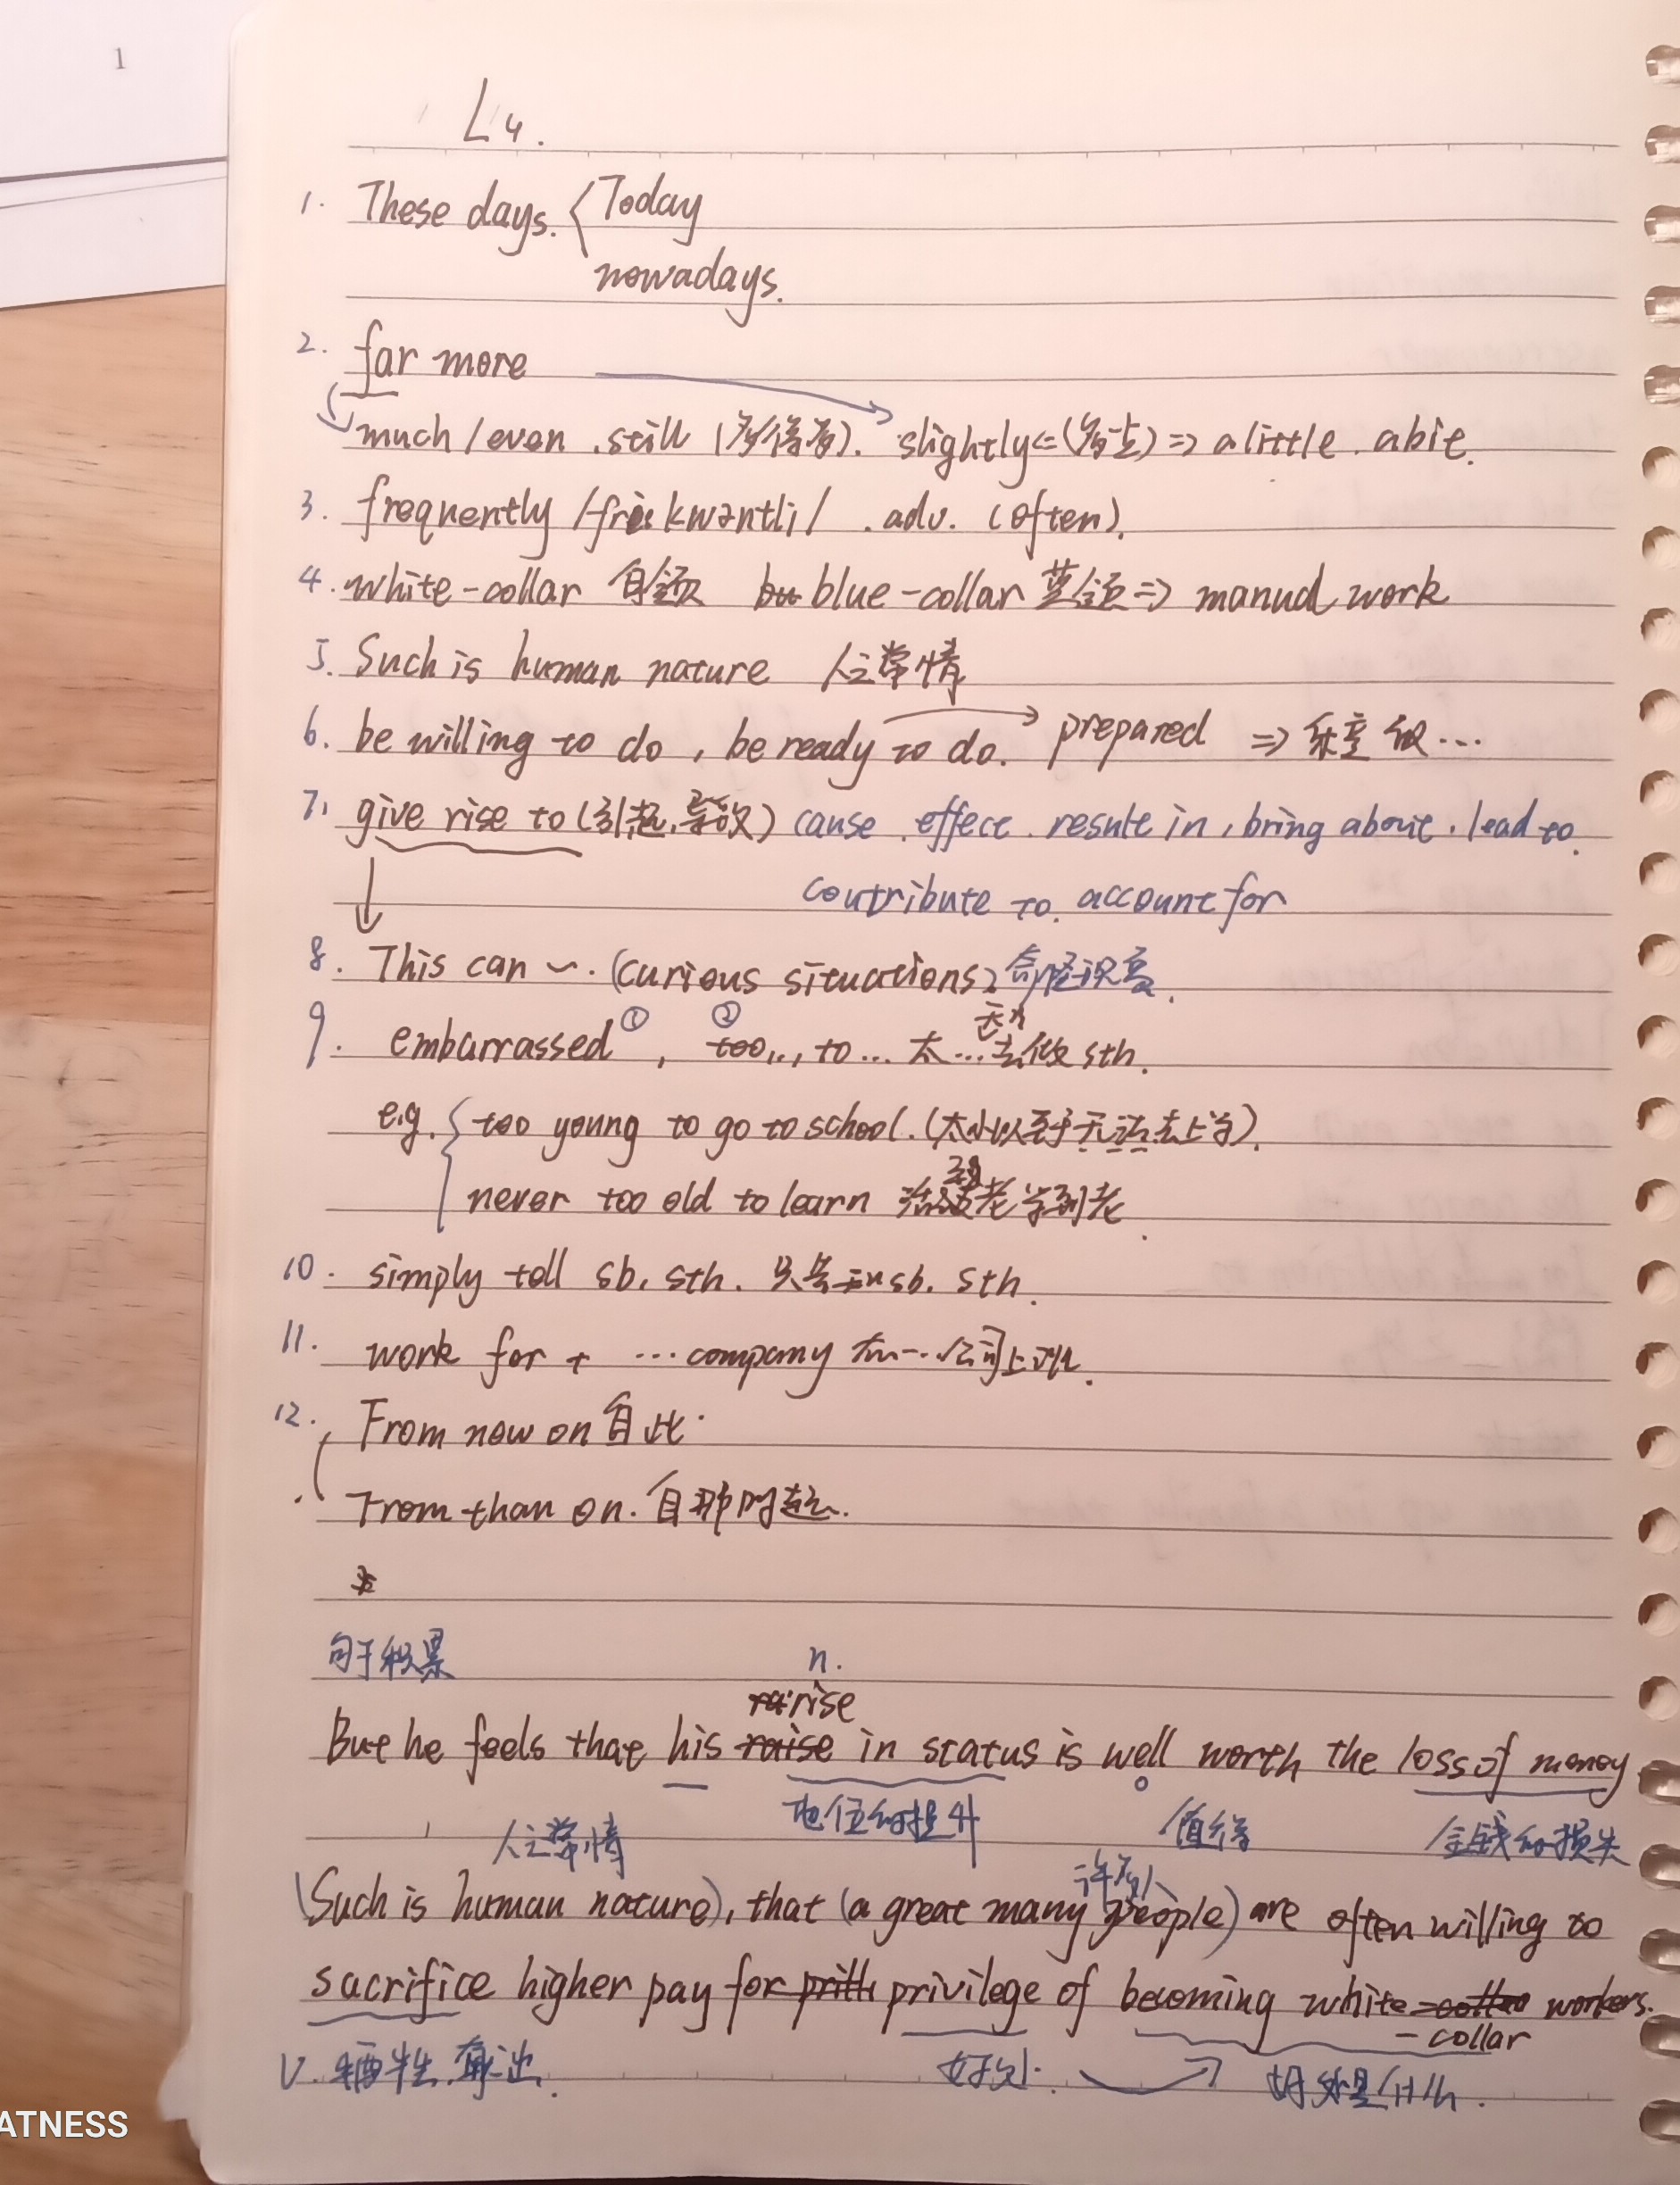 1
L4.
1. These days. Today
nowadays.
2. far more
much/even.still (多得多). slightly<=(多一点)=>a little.abit.
3. frequently /fri:kwəntli/ .adv. (often).
4. white-collar 白领 blue-collar 蓝领=> manual work
5. Such is human nature 人之常情
6. be willing to do, be ready to do. prepared => 乐意做...
7. give rise to (引起.导致) cause.effect.result in, bring about.lead to.
contribute to. account for
8. This can ~. (curious situations)
9. embarrassed①, ②too..., to... 太...无法去做sth.
e.g. too young to go to school.(太小以至于无法去上学).
never too old to learn 活到老学到老.
10. simply tell sb. sth. 只告知sb. sth.
11. work for + ...company 在...公司上班.
12. From now on 自此.
From than on. 自那时起.
句子积累
n.
rise
But he feels that his raise in status is well worth the loss of money
人之常情 地位的提升 值得 金钱的损失
许多人
(Such is human nature), that (a great many people) are often willing to
sacrifice higher pay for privilege of becoming white workers.
-collar
v. 牺牲. 好处. 好处是什么.
ATNESS